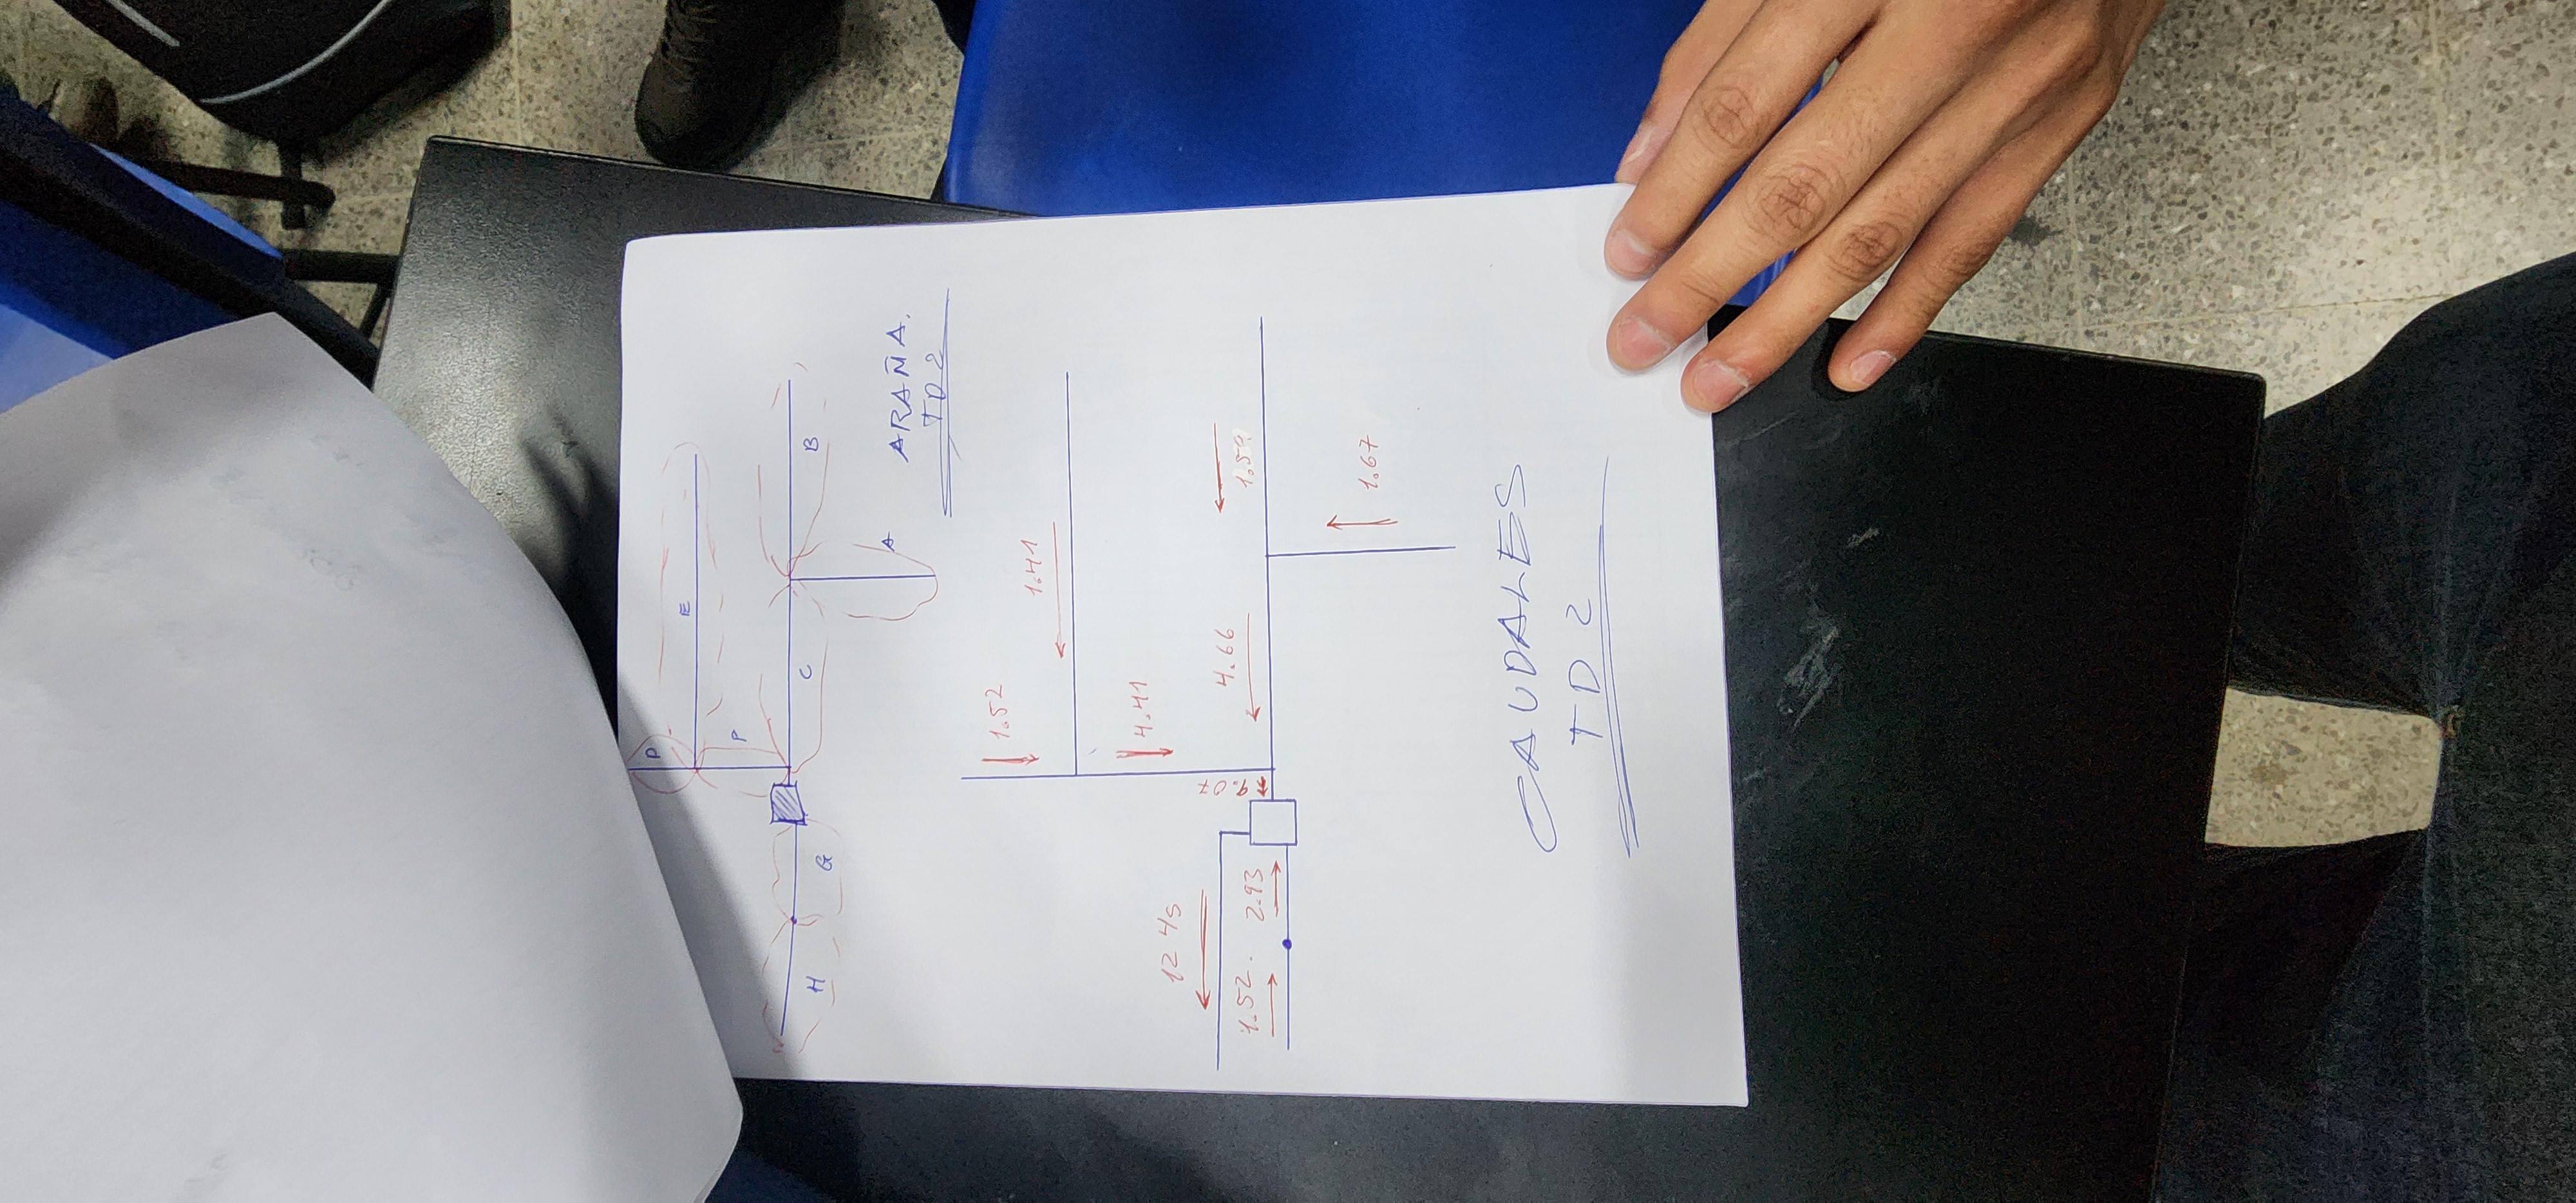 D
E
P
H
G
C
B
A
ARAÑA.
TD2
1.52
1.41
4.41
12 45
9.07
4.66
1.59
1.52.
2.93
1.67
CAUDALES
TD2